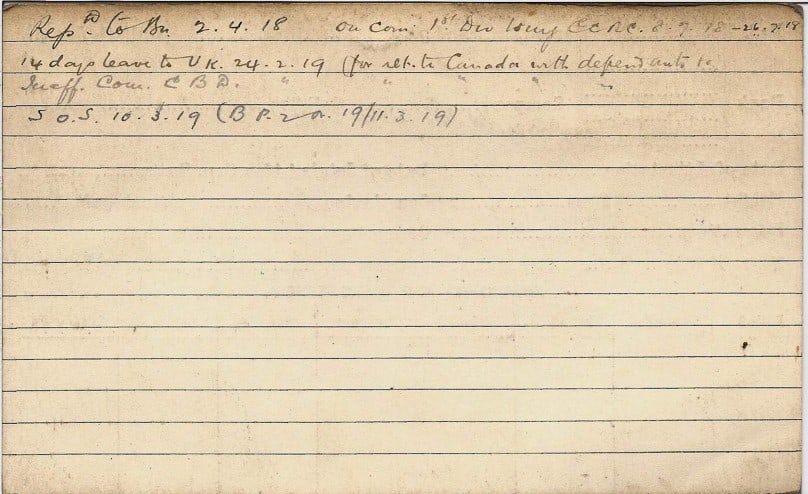 Rep'd to Bn. 2.4.18 on com. 1st Div Wing C.C.R.C. 8.7.18 - 26.7.18
14 days leave to U.K. 24.2.19 (for ret. to Canada with dependants to
Ineff. Com. C B D. " " " " "
S.O.S. 10.3.19 (B P. 2 or. 19/11.3.19)